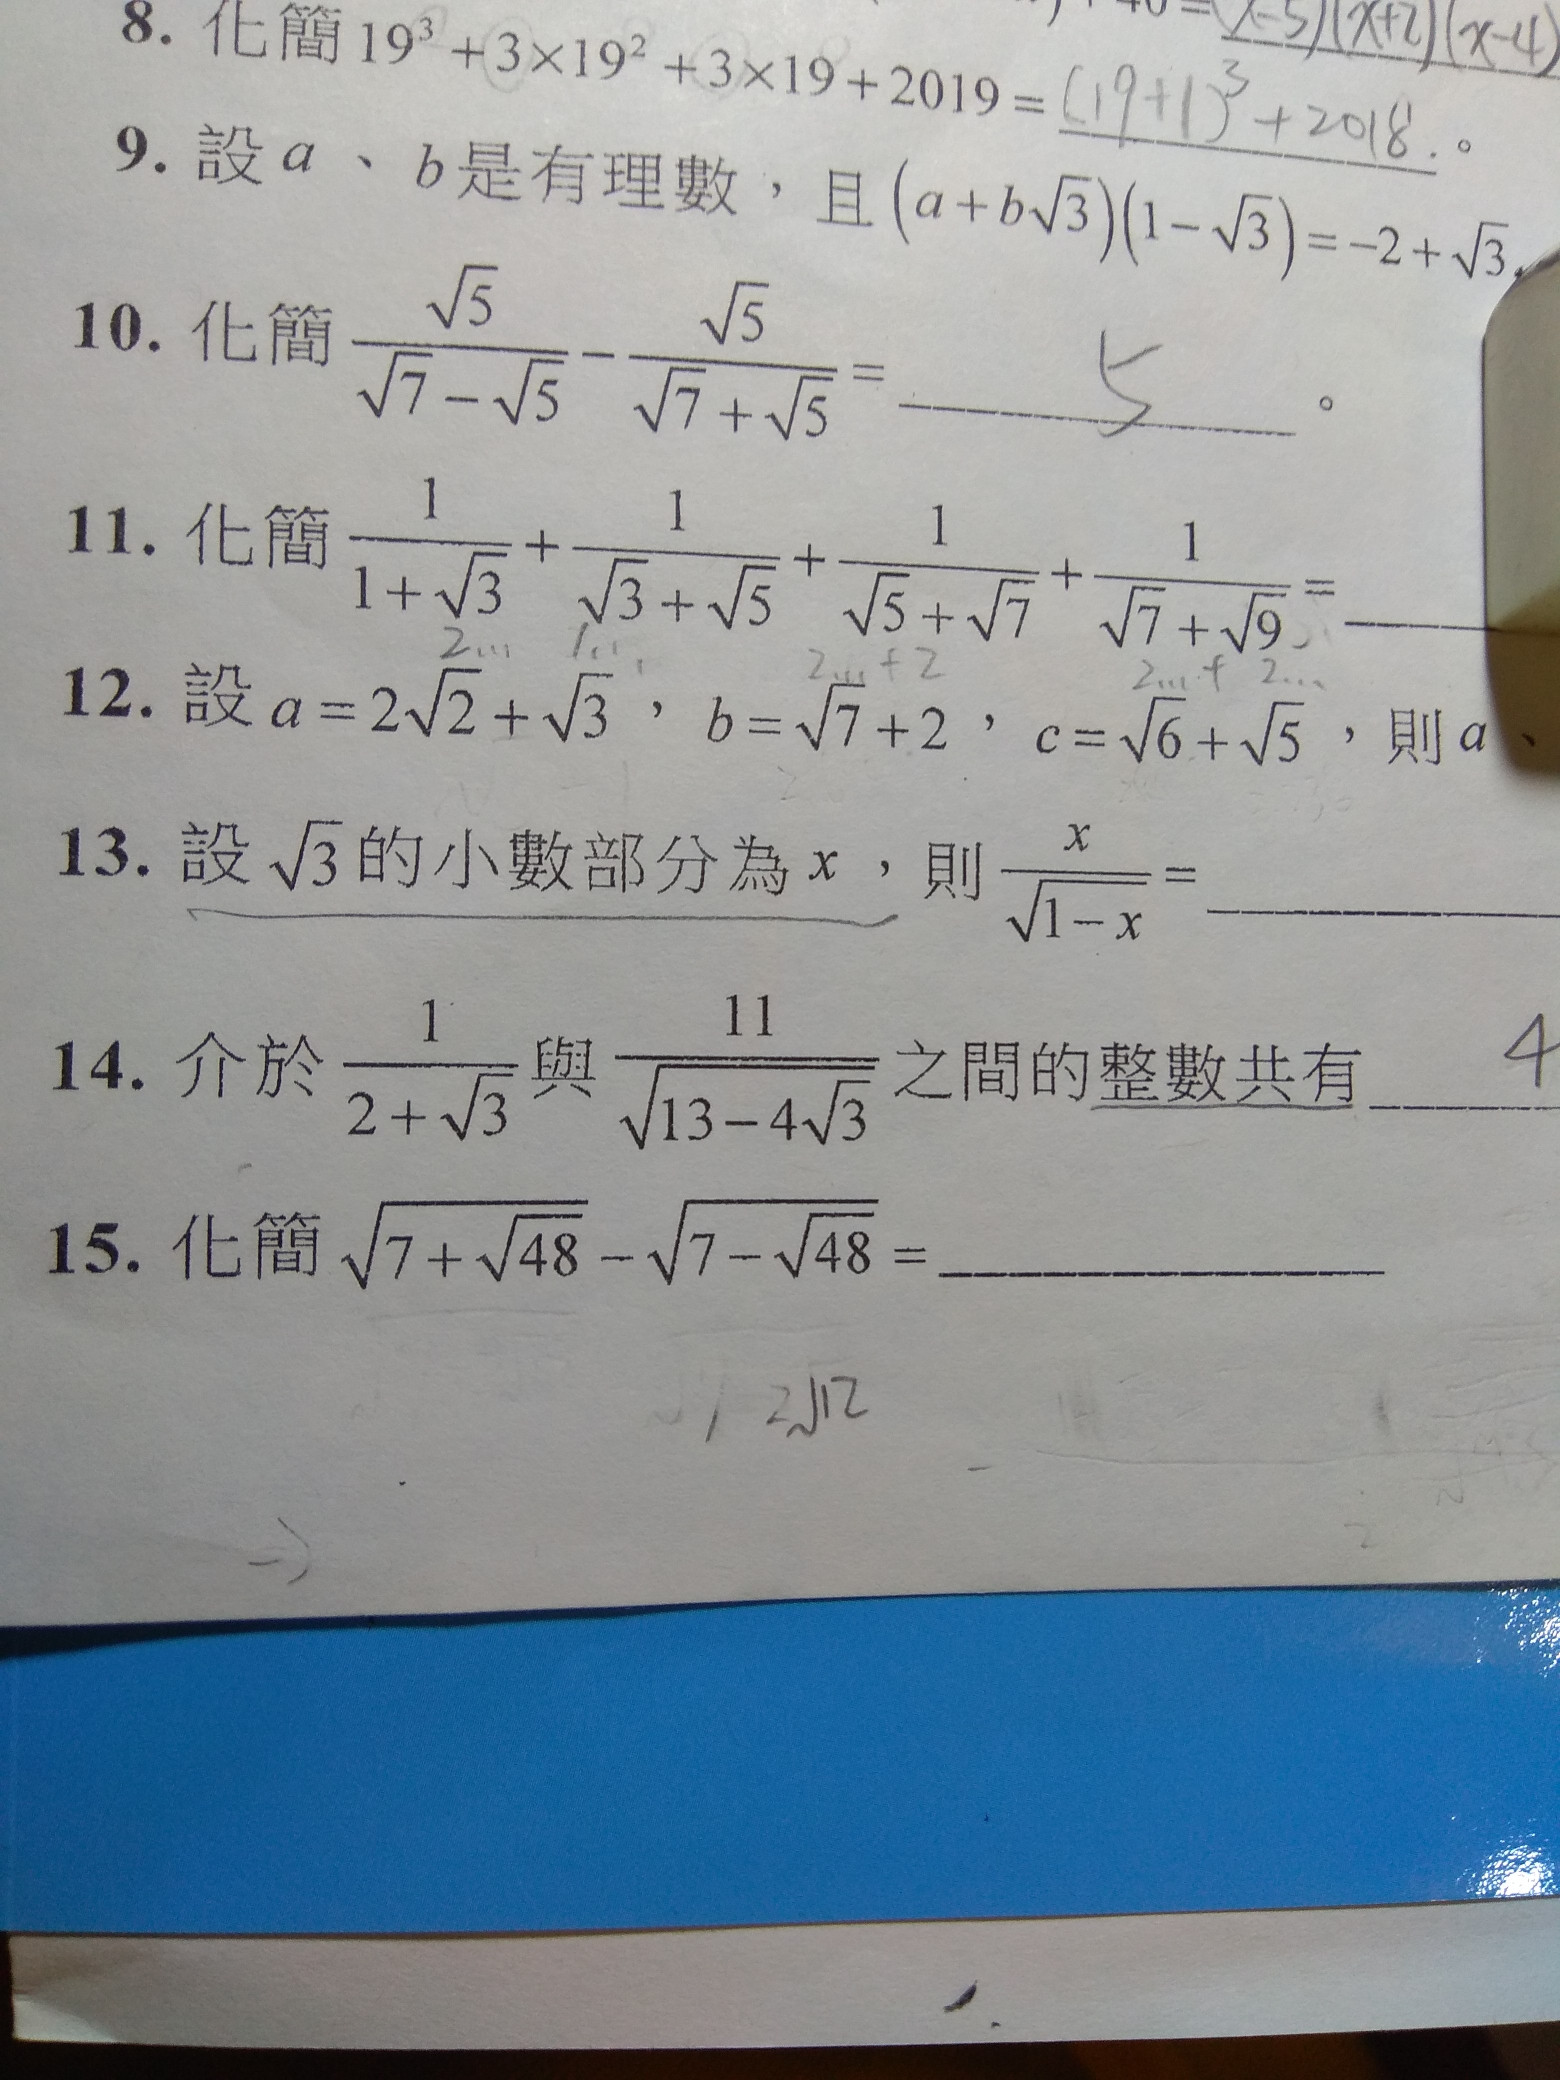 +40=(x-5)(x+2)(x-4)
8. 化簡 19³+3×19²+3×19+2019=(19+1)³+2018.。
9. 設 a、b是有理數,且(a+b√3)(1-√3)=-2+√3,
10. 化簡 √5/(√7-√5) - √5/(√7+√5) = 5 。
11. 化簡 1/(1+√3) + 1/(√3+√5) + 1/(√5+√7) + 1/(√7+√9) =
2... 1... 2...+2 2...+2...
12. 設 a=2√2+√3,b=√7+2,c=√6+√5,則 a、
13. 設 √3 的小數部分為 x,則 x/√(1-x) =
14. 介於 1/(2+√3) 與 11/√(13-4√3) 之間的整數共有 4
15. 化簡 √(7+√48) - √(7-√48) =
2√12